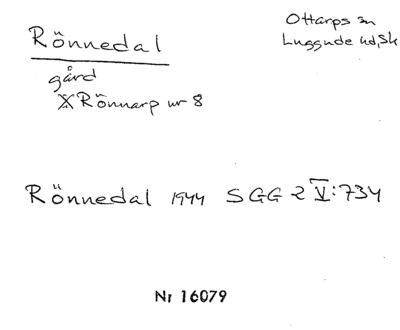 Rönnedal
Ottarps sn
Luggude hd, Sk
gård
X Rönnarp nr 8
Rönnedal 1944 SGG 2 V:734
Nr 16079